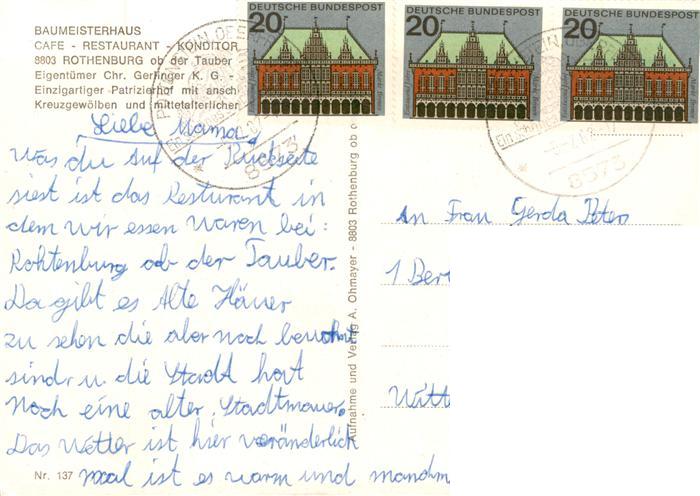 BAUMEISTERHAUS
CAFE - RESTAURANT - KONDITOR
8803 ROTHENBURG ob der Tauber
Eigentümer Chr. Gerlinger K. G. -
Einzigartiger Patrizierhof mit ansch
Kreuzgewölben und mittelalterlicher
20 DEUTSCHE BUNDESPOST
20 DEUTSCHE BUNDESPOST
20 DEUTSCHE BUNDESPOST
8573
8573
Liebe Mama,
Was du Auf der Rückseite
siest ist das Resturant in
dem wir essen waren bei:
Rohtenburg ob der Tauber.
Da gibt es Alte Häuer
zu sehen die aber noch bewohnt
sind. u. die Stadt hat
noch eine alter, Stadtmauer.
Das Wetter ist hier veränderlich
mal ist es warm und manchm
Nr. 137
Aufnahme und Verlag A. Ohmayer - 8803 Rothenburg ob
An Frau Gerda Peters
1 Ber
Witt